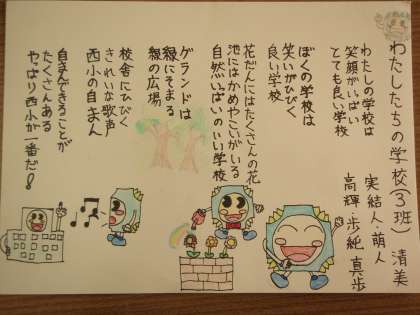 わたしたちの学校(3班) 清美
実結人・萌人
高輝・歩純 真歩
わたしの学校は
笑顔がいっぱい
とても良い学校
ぼくの学校は
笑いがひびく
良い学校
花だんにはたくさんの花
池にはかめやこいがいる
自然いっぱいのいい学校
グランドは
緑にそまる
緑の広場
校舎にひびく
きれいな歌声
西小の自まん
自まんできることが
たくさんある
やっぱり西小が一番だ!